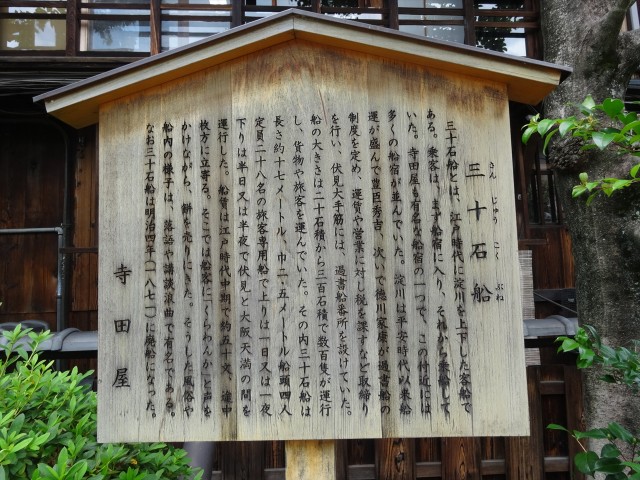 三十石船
さん じゅう こく ぶね
三十石船とは、江戸時代に淀川を上下した客船で
ある。乗客は、まず船宿に入り、それから乗船して
いた。寺田屋も有名な船宿の一つで、この付近には
多くの船宿が並んでいた。淀川は平安時代以来船
運が盛んで豊臣秀吉、次いで徳川家康が過書船の
制度を定め、運賃や営業に対し税を課すなど取締り
を行い、伏見大手筋には、過書船番所を設けていた。
船の大きさは二十石積から三百石積で数百隻が運行
し、貨物や旅客を運んでいた。その内三十石船は
長さ約十七メートル、巾二・五メートル船頭四人
定員二十八名の旅客専用船で上りは一日又は一夜
下りは半日又は半夜で伏見と大阪天満の間を
運行した。船賃は江戸時代中期で約五十文、途中
枚方に立寄る。そこでは船客に「くらわんか」と声を
かけながら、餅を売りにきた。そうした風俗や
船内の様子は、落語や講談浪曲で有名である。
なお三十石船は明治四年(一八七一)に廃船になった。
寺田屋